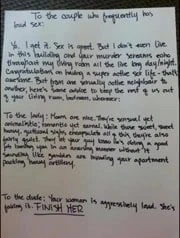 To the couple who frequently has
loud sex:
Yo. I get it. Sex is great. But I don't even live
in this building and your murder screams echo
throughout my living room all the live long day/night.
Congratulations on having a super active sex life - that's
awesome. But from one sexually active neighbour to
another, here's some advice to keep the rest of us out
of your living room, bedroom, wherever:
To the lady: Moans are nice. They're sensual yet
animalistic, romantic yet carnal. While those sweet, sweet
honey, guttural sighs encapsulate all of this, they're also
fairly quiet. They let your guy know he's doing a good
job turning you on in amazing manner without it
sounding like zombies are invading your apartment
packing heavy artillery.
To the dude: Your woman is aggressively loud. She's
faking it. FINISH HER